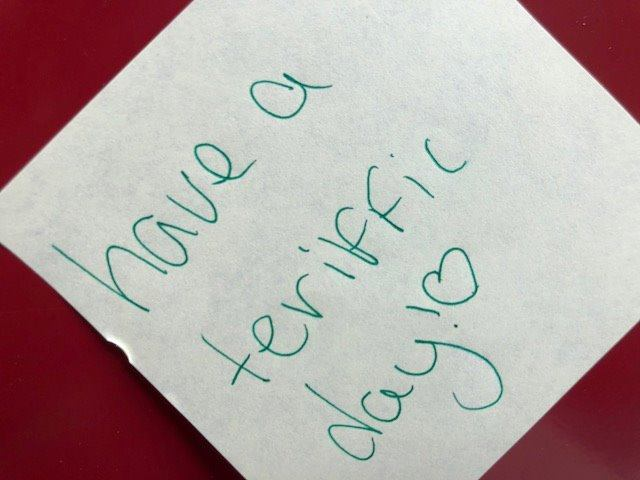 have a
teriffic
day! ♡